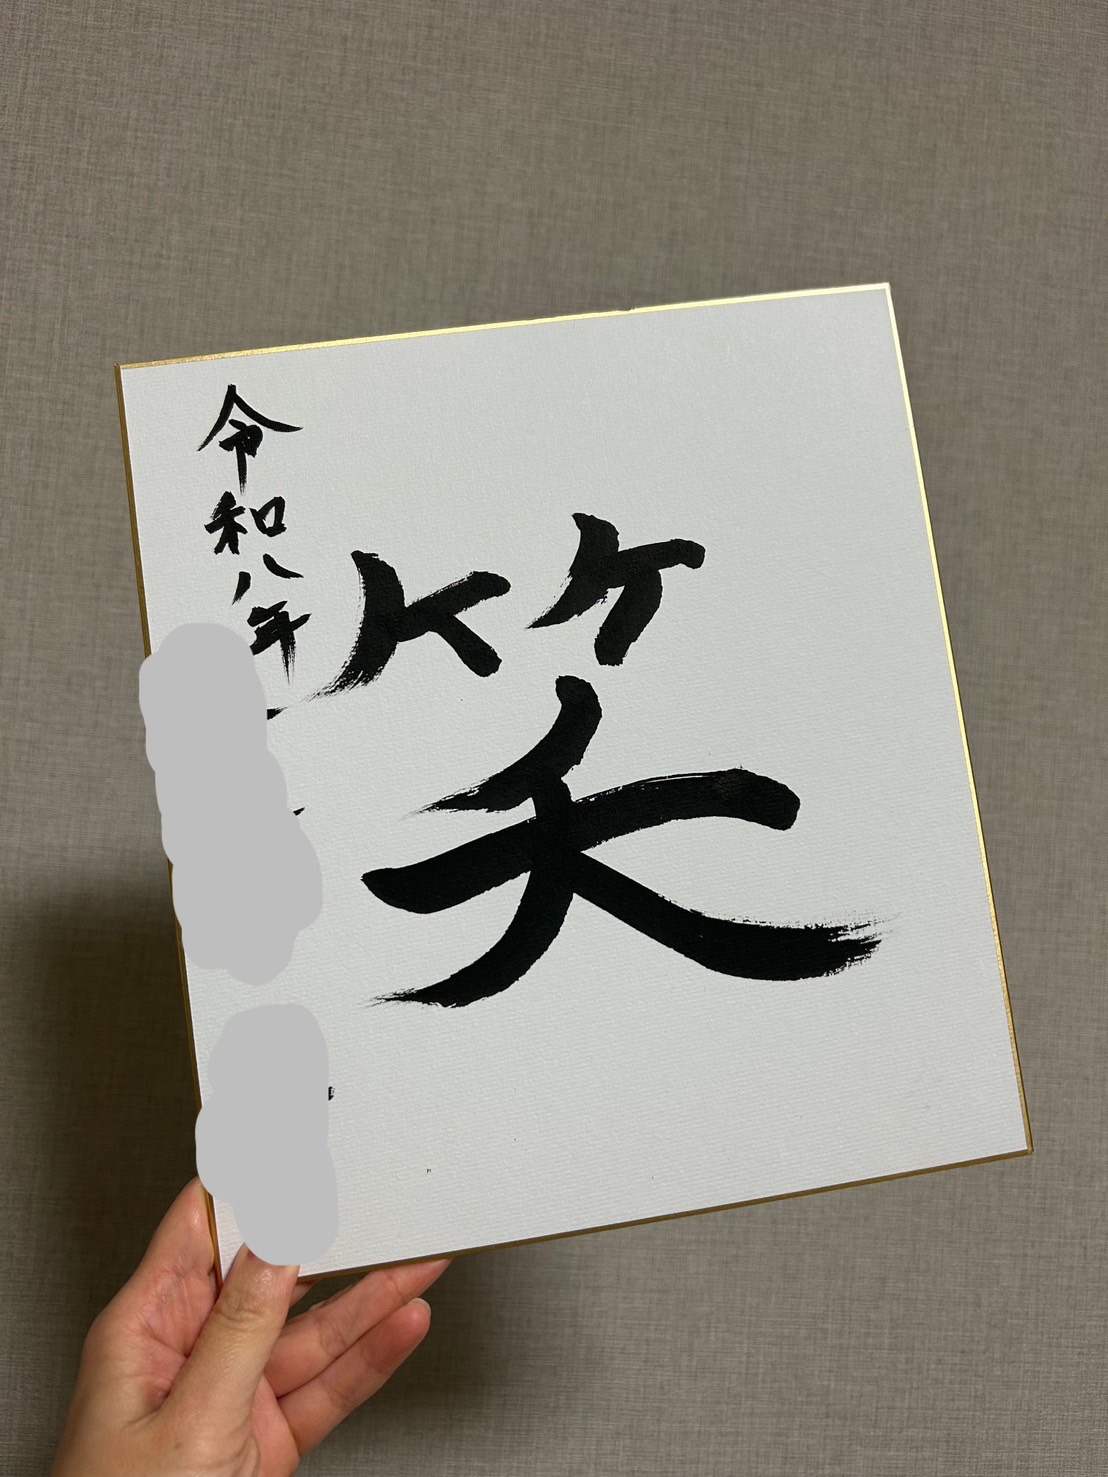 笑
令和八年